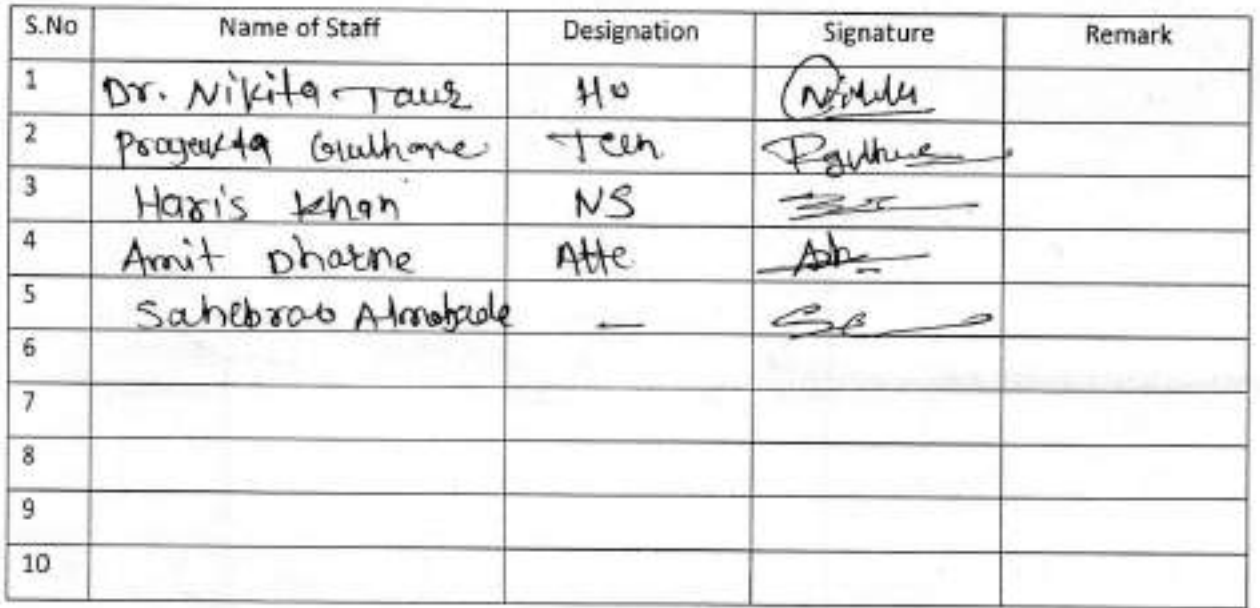 S.No Name of Staff Designation Signature Remark
1 Dr. Nikita Taur HO
2 Prajakta Gulhane Tech
3 Haris Khan NS
4 Amit Dhatne Atte
5 Sahebrao —
6
7
8
9
10